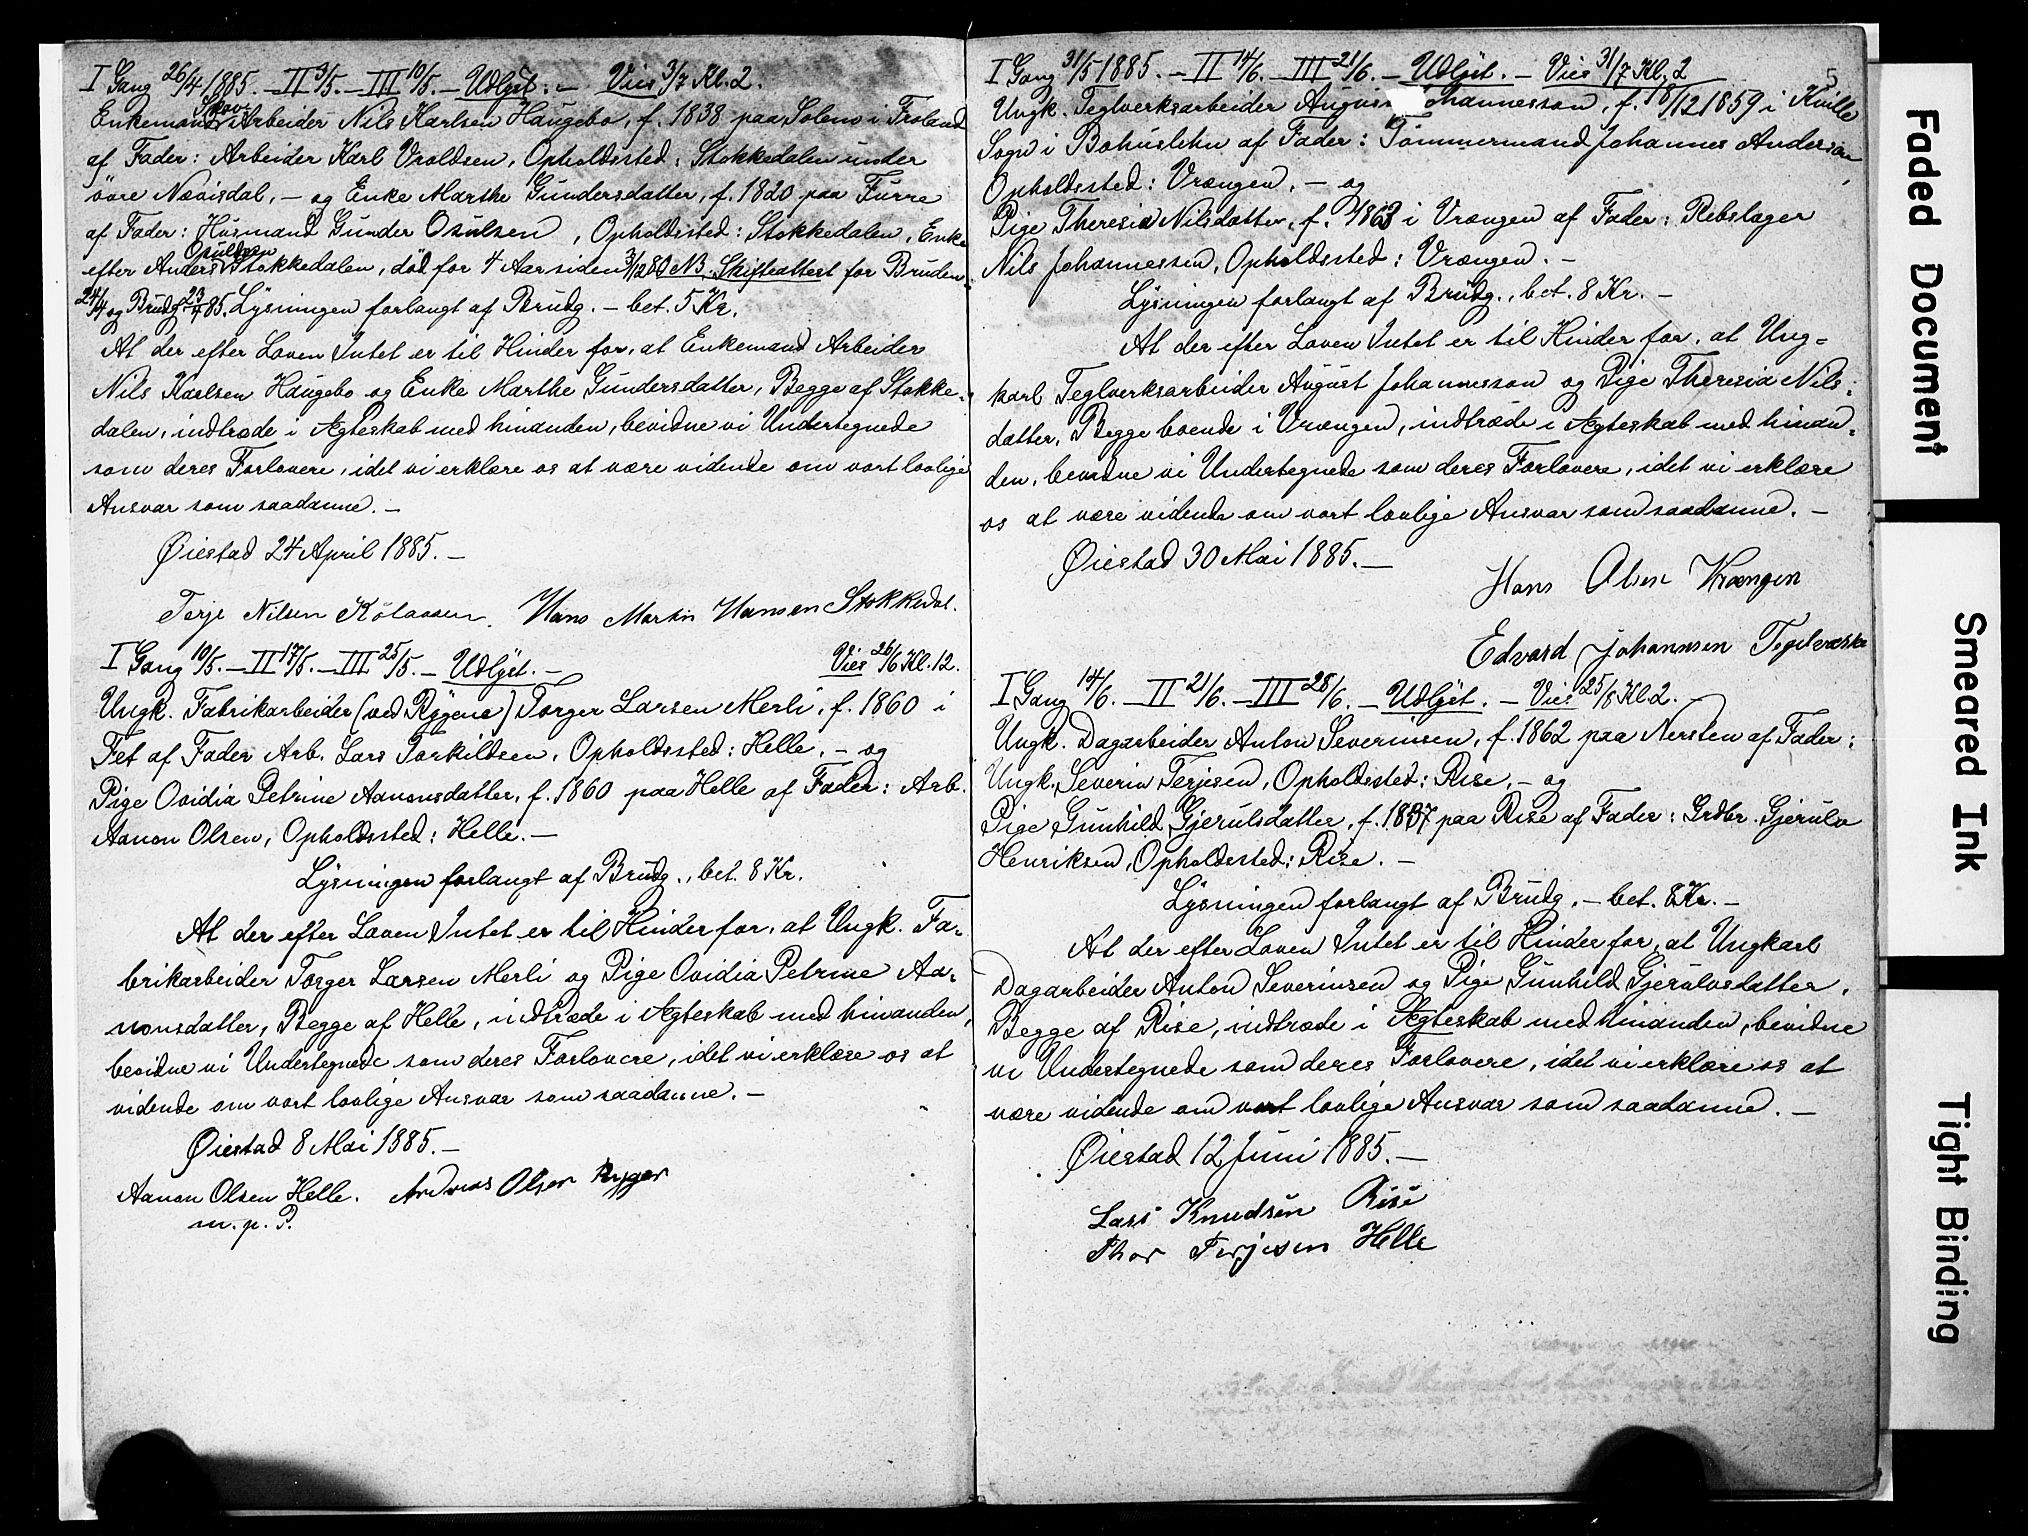 I Gang 26/4 1885. – II 3/5. – III 10/5. – Udlyst. – Vies 3/7 Kl. 2.
Enkemand Skov Arbeider Nils Karlsen Haugebo, f. 1838 paa Solens i Froland
af Fader: Arbeider Karl Vroldsen, Opholdssted: Stokkedalen under
övre Nævisdal, – og Enke Marthe Gundersdatter, f. 1820 paa Furre
af Fader: Husmand Gunder Osulsen, Opholdssted: Stokkedalen, Enke
efter Anders Osuldsen Stokkedalen, död for 4 Aar siden 3/12 80 NB. Skifteattest for Bruden
24/4 og Brudg. 23/4 85. Lysningen forlangt af Brudg. – bet. 5 Kr.
At der efter Loven Intet er til Hinder for, at Enkemand Arbeider
Nils Karlsen Haugebo og Enke Marthe Gundersdatter, Begge af Stokke-
dalen, indtræde i Ægteskab med hinanden, bevidne vi Undertegnede
som deres Forlovere, idet vi erklære os at være vidende om vort lovlige
Ansvar som saadanne. –
Øiestad 24 April 1885. –
Terje Nilsen Hans Martin Hansen Stokkedal.
I Gang 10/5. – II 17/5. – III 25/5. – Udlyst. – Vies 26/6 Kl. 12.
Ungk. Fabrikarbeider (ved Rygene) Torger Larsen Merli, f. 1860 i
Fet af Fader Arb. Lars Torkildsen, Opholdssted: Helle. – og
Pige Ovidia Petrine Aanonsdatter, f. 1860 paa Helle af Fader: Arb.
Aanon Olsen, Opholdssted: Helle. –
Lysningen forlangt af Brudg., bet. 8 Kr.
At der efter Loven Intet er til Hinder for, at Ungk. Fa-
brikarbeider Torger Larsen Merli og Pige Ovidia Petrine Aa-
nonsdatter, Begge af Helle, indtræde i Ægteskab med hinanden,
bevidne vi Undertegnede som deres Forlovere, idet vi erklære os at
vidende om vort lovlige Ansvar som saadanne. –
Øiestad 8 Mai 1885. –
Aanon Olsen Helle. Andreas Olsen Rygen
m. p. P.
5
I Gang 31/5 1885. – II 14/6. – III 21/6. – Udlyst. – Vies 31/7 Kl. 2
Ungk. Teglverksarbeider August Johannesson, f. 18/12 1859 i Kville
Sogn i Bohuslehn af Fader: Tömmermand Johannes Anderson,
Opholdssted: Vrængen, – og
Pige Theresia Nilsdatter, f. 1863 i Vrængen af Fader: Rebslager
Nils Johannessen, Opholdssted: Vrængen. –
Lysningen forlangt af Brudg., bet. 8 Kr. –
At der efter Loven Intet er til Hinder for, at Ung-
karl Teglverksarbeider August Johannesson og Pige Theresia Nils-
datter, Begge boende i Vrængen, indtræde i Ægteskab med hinan-
den, bevidne vi Undertegnede som deres Forlovere, idet vi erklære
os at være vidende om vort lovlige Ansvar som saadanne. –
Øiestad 30 Mai 1885. –
Hans Olsen Vrængen
Edvard Johannsen
I Gang 14/6. – II 21/6. – III 28/6. – Udlyst. – Vies 25/8 Kl. 2.
Ungk. Dagarbeider Anton Severinsen, f. 1862 paa Nersten af Fader:
Ungk. Severin Terjesen, Opholdssted: Rise, – og
Pige Gunhild Gjerulsdatter, f. 1837 paa Rise af Fader: Grdbr. Gjerulv
Henriksen, Opholdssted: Rise. –
Lysningen forlangt af Brudg. – bet. 8 Kr. –
At der efter Loven Intet er til Hinder for, at Ungkarl
Dagarbeider Anton Severinsen og Pige Gunhild Gjerulvsdatter,
Begge af Rise, indtræde i Ægteskab med hinanden, bevidne
vi Undertegnede som deres Forlovere, idet vi erklære os at
være vidende om vort lovlige Ansvar som saadanne. –
Øiestad 12 Juni 1885. –
Lars Knudsen Rise
Thor Terjesen Helle
Faded Document
Smeared Ink
Tight Binding